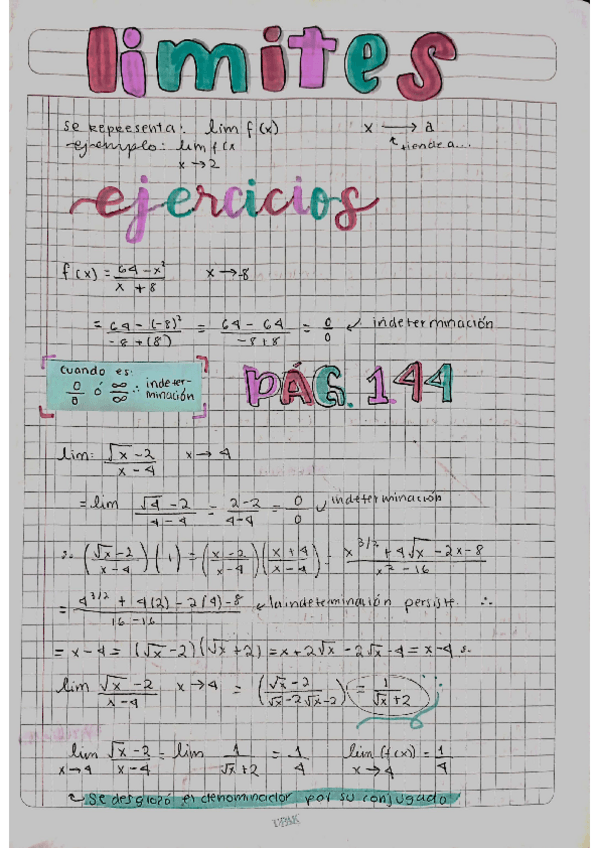 límites
se representa: lim f(x) x → a
ejemplo: lim f(x tiende a...
x→2
ejercicios
f(x) = 64-x² / x+8 x→-8
= 64-(-8)² / -8+(8) = 64-64 / -8+8 = 0/0 ↙ indeterminación
cuando es:
0/0 ó ∞/∞ ∴ indeter-
minación
PÁG. 144
lim: √x-2 / x-4 x→4
= lim √4-2 / 4-4 = 2-2 / 4-4 = 0/0 ↙ indeterminación
(√x-2 / x-4)(1) = (x-2 / x-4)(x+4 / x-4) = x^3/2+4√x-2x-8 / x²-16
= 4^3/2+4(2)-2(4)-8 / 16-16 ↙ la indeterminación persiste ∴
= x-4 = (√x-2)(√x+2) = x+2√x-2√x-4 = x-4 s.
lim √x-2 / x-4 x→4 = (√x-2 / √x-2√x-2) = 1 / √x+2
lim √x-2 / x-4 = lim 1 / √x+2 = 1/4 lim (f(x)) = 1/4
x→4 x→4
Se desglozó el denominador por su conjugado